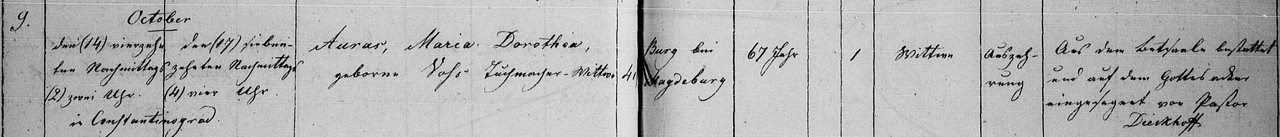 9.
October
den (14) vierzehn
ten Nachmittags
(2) zwei Uhr.
den (17) sieben-
zehnten Nachmittags
(4) vier Uhr.
in Constantinograd.
Auras, Maria Dorothea,
geborne Voss Tuchmacher-Wittwe
41
Burg bei
Magdeburg
67 Jahr
1
Wittwe
Auszeh-
rung
Aus dem Betsaale bestattet
und auf dem Gottesacker
eingesegnet von Pastor
Dieckhoff